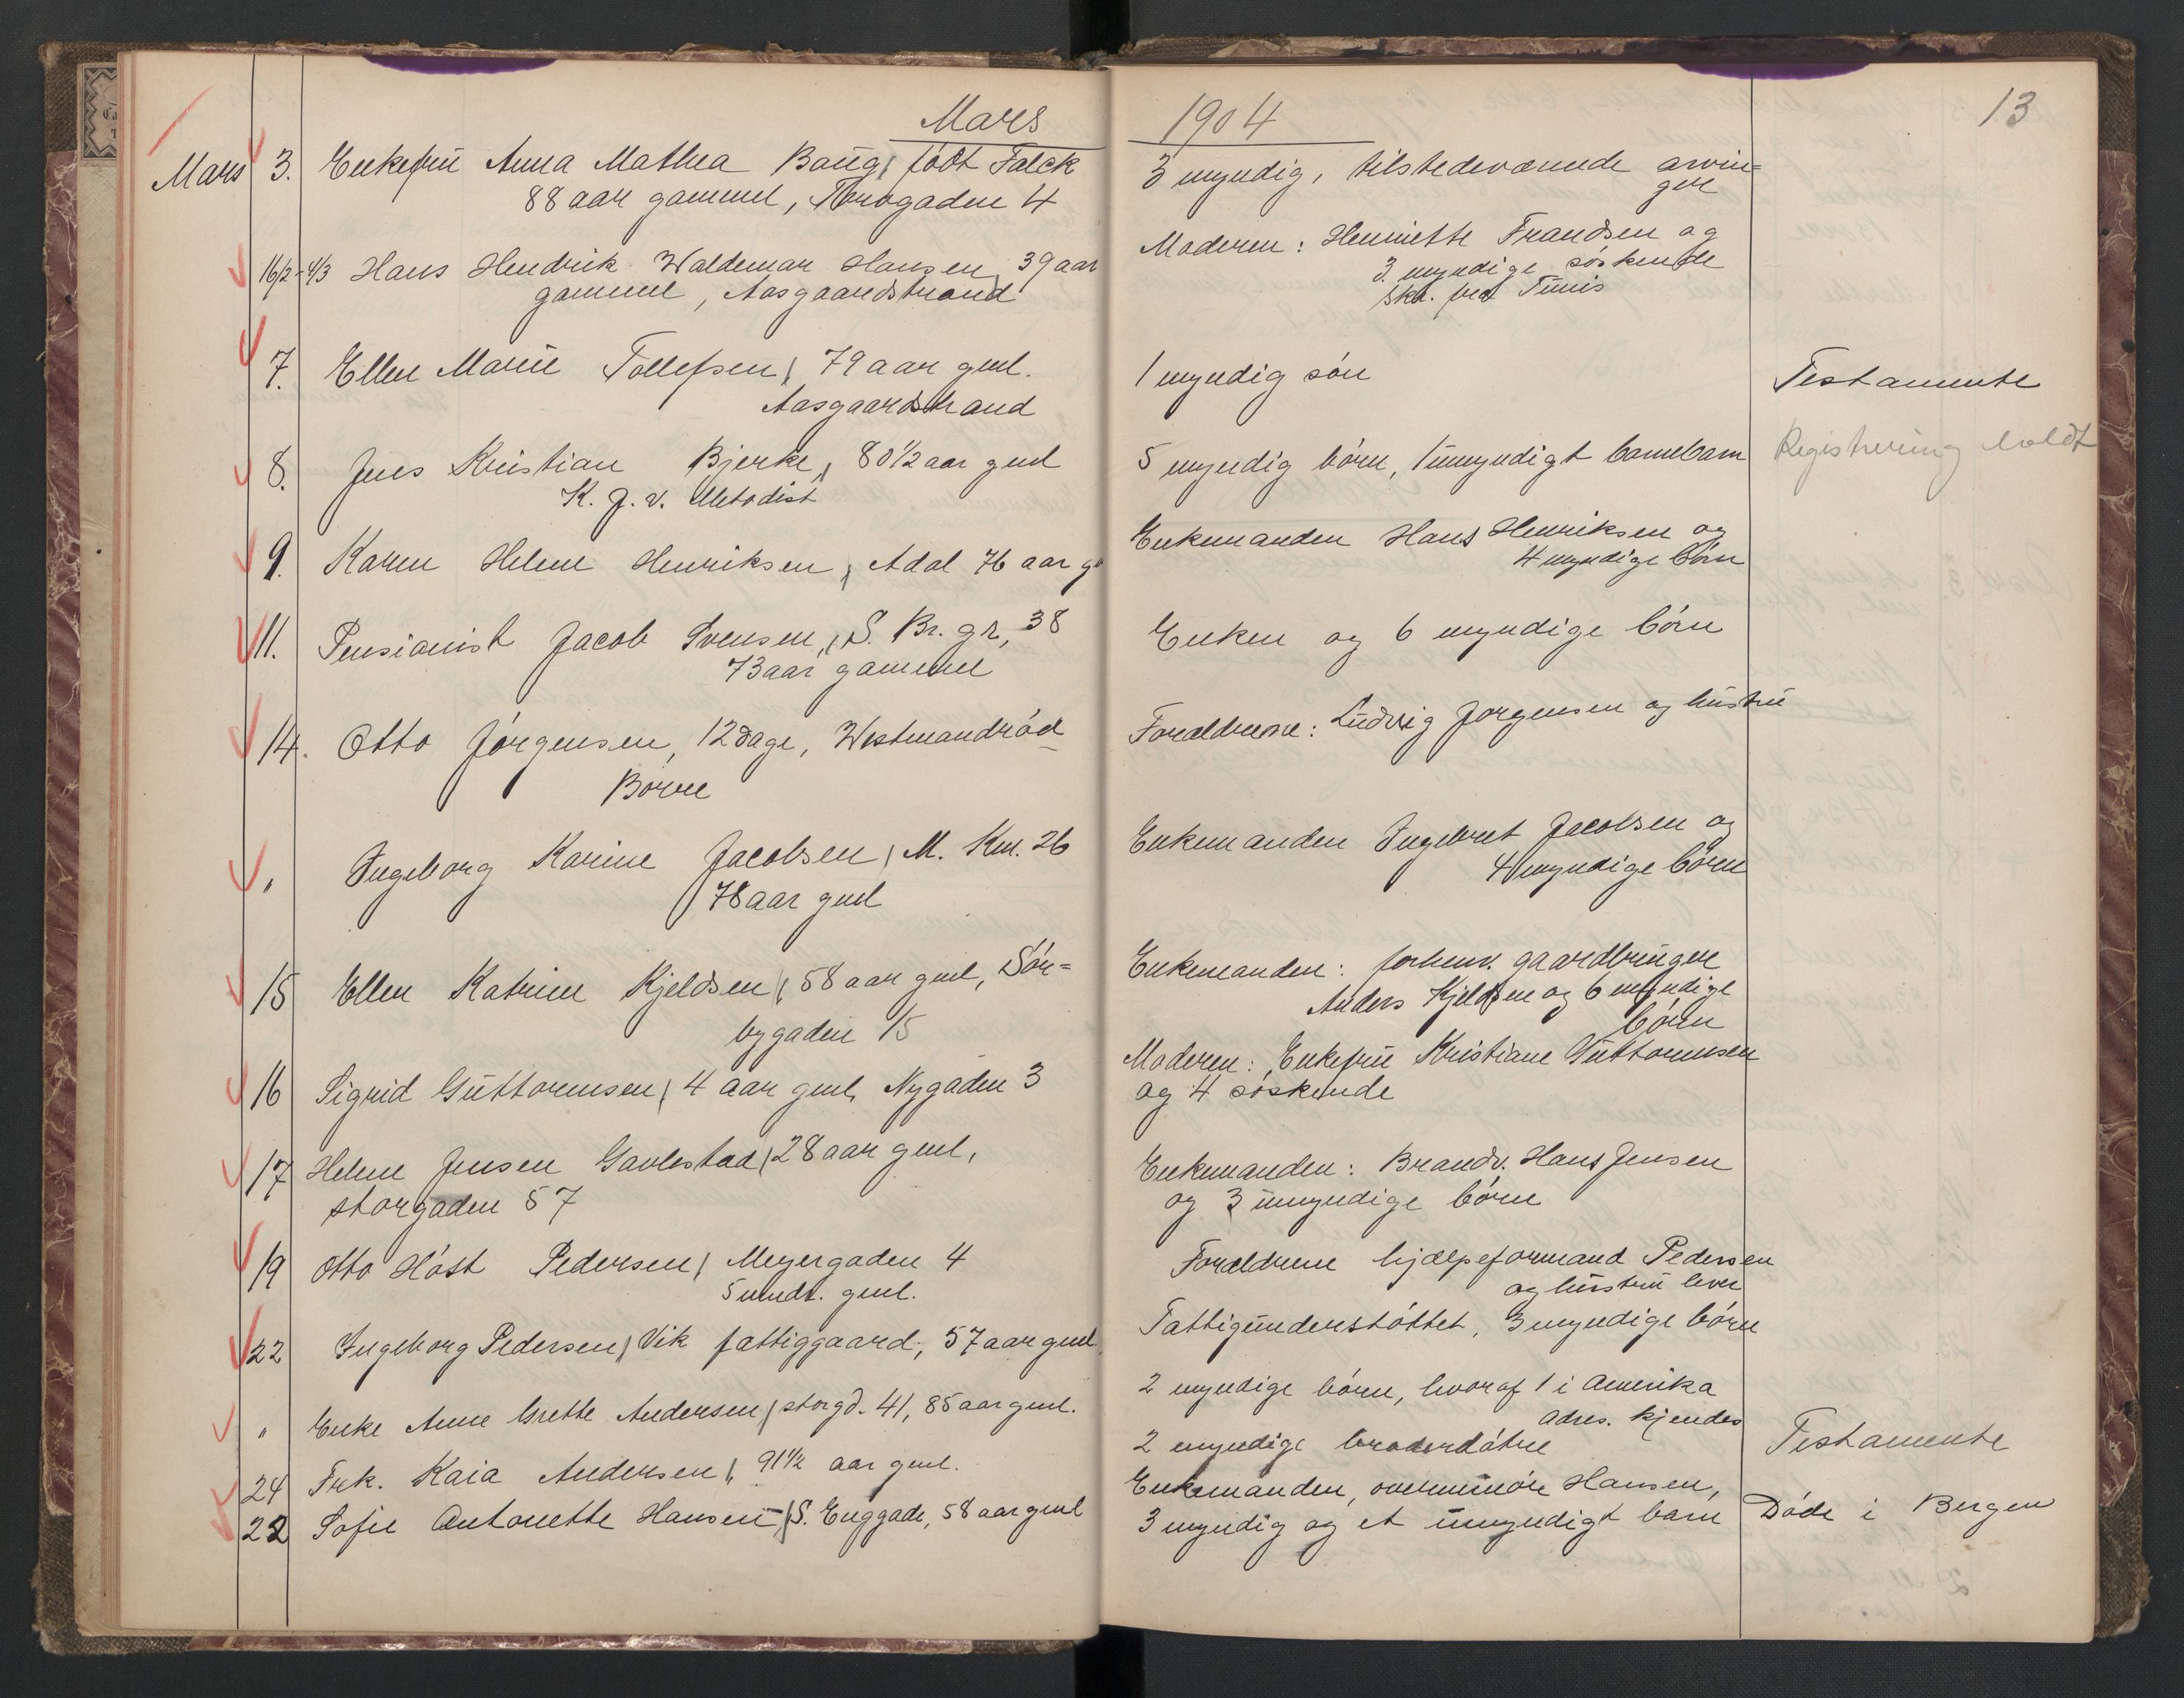 Mars 1904 13
Mars 3. Enkefru Anna Mathea Baug, født Falck
88 aar gammel, Torvgaden 4
3 myndig, tilstedeværende arvin=
ger
16/2-4/3 Hans Hendrik Waldemar Hansen, 39 aar
gammel, Aasgaardstrand
Moderen: Henriette Frandsen og
3 myndige søskende
Sk. ved Tunis
7. Ellen Marie Tollefsen, 79 aar gml.
Aasgaardstrand
1 myndig søn
Testamente
8. Jens Kristian Bjerke, 80 1/2 aar gml
K. J. v. Metodist
5 myndig børn, 1 umyndigt barnebarn
Registrering holdt
9. Karen Helene Henriksen, Adal 76 aar g
Enkemanden Hans Henriksen og
4 myndige børn
11. Pensionist Jacob Svensen, S. Br. gr, 38
73 aar gammel
Enken og 6 myndige børn
14. Otto Jørgensen, 12 dage, Westmandrød
Borre
Forældrene: Ludvig Jørgensen og hustru
" Ingeborg Karine Jacobsen, M. Km. 26
78 aar gml
Enkemanden Ingebret Jacobsen og
4 myndige børn
15 Ellen Katrine Kjeldsen, 58 aar gml, Sør=
bygaden 15
Enkemanden: forhenv. gaardbruger
Anders Kjeldsen og 6 myndige
børn
16 Sigrid Guttormsen, 4 aar gml, Nygaden 3
Moderen: Enkefru Kristiane Guttormsen
og 4 søskende
17 Helene Jensen Gavlestad, 28 aar gml,
Storgaden 57
Enkemanden: Brandv. Hans Jensen
og 3 umyndige børn
19 Otto Høst Pedersen, Meyergaden 4
5 mndr. gml.
Forældrene hjælpeformand Pedersen
og hustru lever
22 Ingeborg Pedersen, Vik fattiggaard, 57 aar gml.
Fattigunderstøttet, 3 myndige børn
" Enke Anne Grette Andersen, storgd. 41, 85 aar gml.
2 myndige børn, hvoraf 1 i Amerika
adres. kjendes
24 Frk. Kaia Andersen, 91 1/2 aar gml.
2 myndige broderdøtre
Testamente
22 Sofie Antonette Hansen, S. Enggade, 58 aar gml
Enkemanden, overminør Hansen,
3 myndig og et umyndigt barn
Døde i Bergen